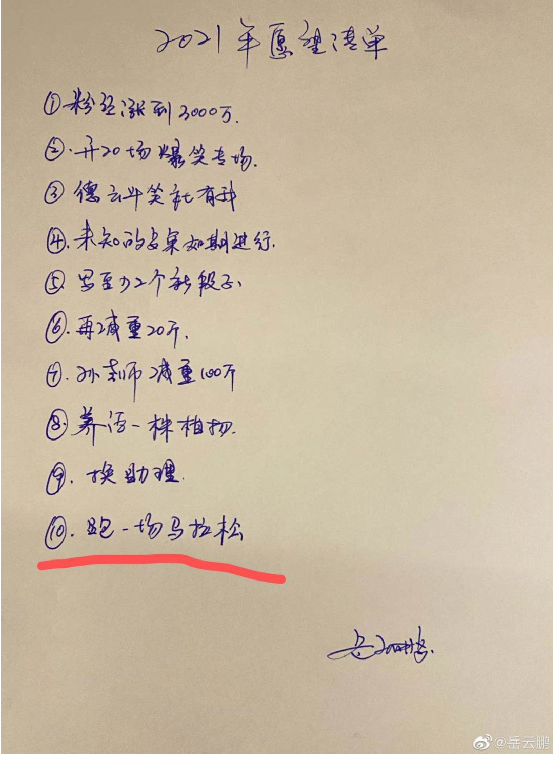 2021年愿望清单
①粉丝涨到3000万.
②.开20场爆笑专场.
③德云斗笑社有我
④.未知的专桌如期进行.
⑤写至少2个新段子.
⑥.再减重20斤.
⑦.孙老师减重100斤
⑧.养活一株植物.
⑨.换助理.
⑩.跑一场马拉松
岳云鹏.
@岳云鹏